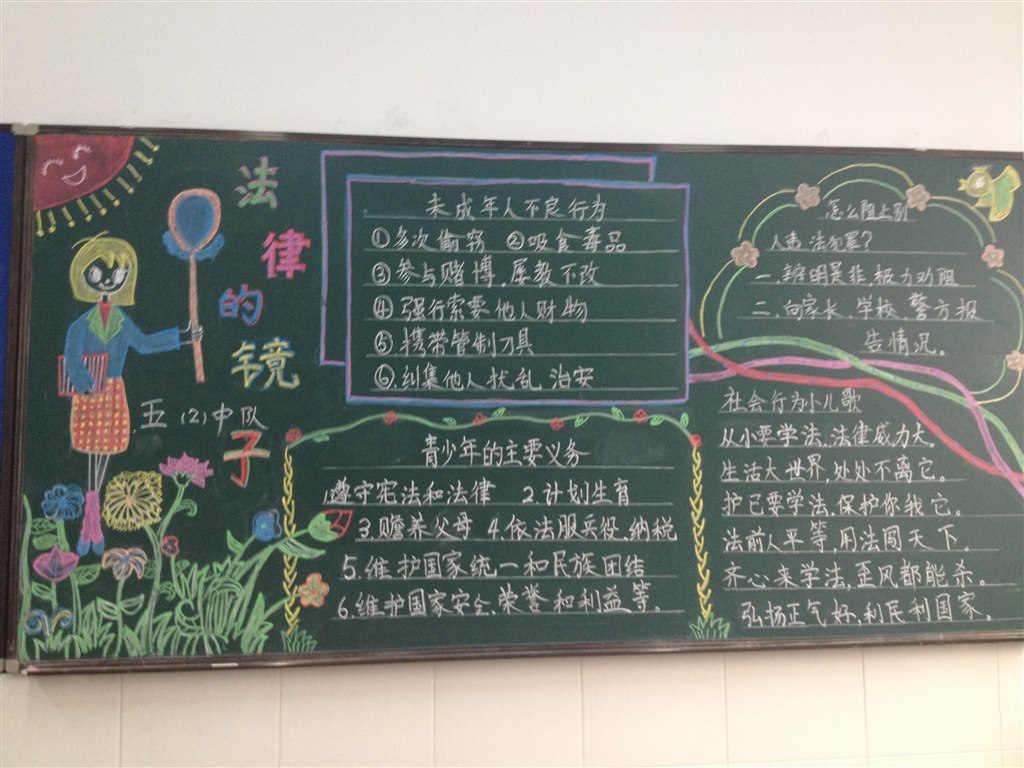 法律的镜子
五(2)中队
未成年人不良行为
①多次偷窃 ②吸食毒品
③参与赌博,屡教不改
④强行索要他人财物
⑤携带管制刀具
⑥.纠集他人扰乱治安
青少年的主要义务
1遵守宪法和法律 2计划生育
3.赡养父母 4.依法服兵役、纳税
5.维护国家统一和民族团结
6.维护国家安全、荣誉和利益等。
怎么阻止别
人违法犯罪?
一.辨明是非,极力劝阻
二.向家长、学校、警方报
告情况。
社会行为小儿歌
从小要学法,法律威力大。
生活大世界,处处不离它。
护己要学法,保护你我它。
法前人平等,用法闯天下。
齐心来学法,歪风都能杀。
弘扬正气好,利民利国家。